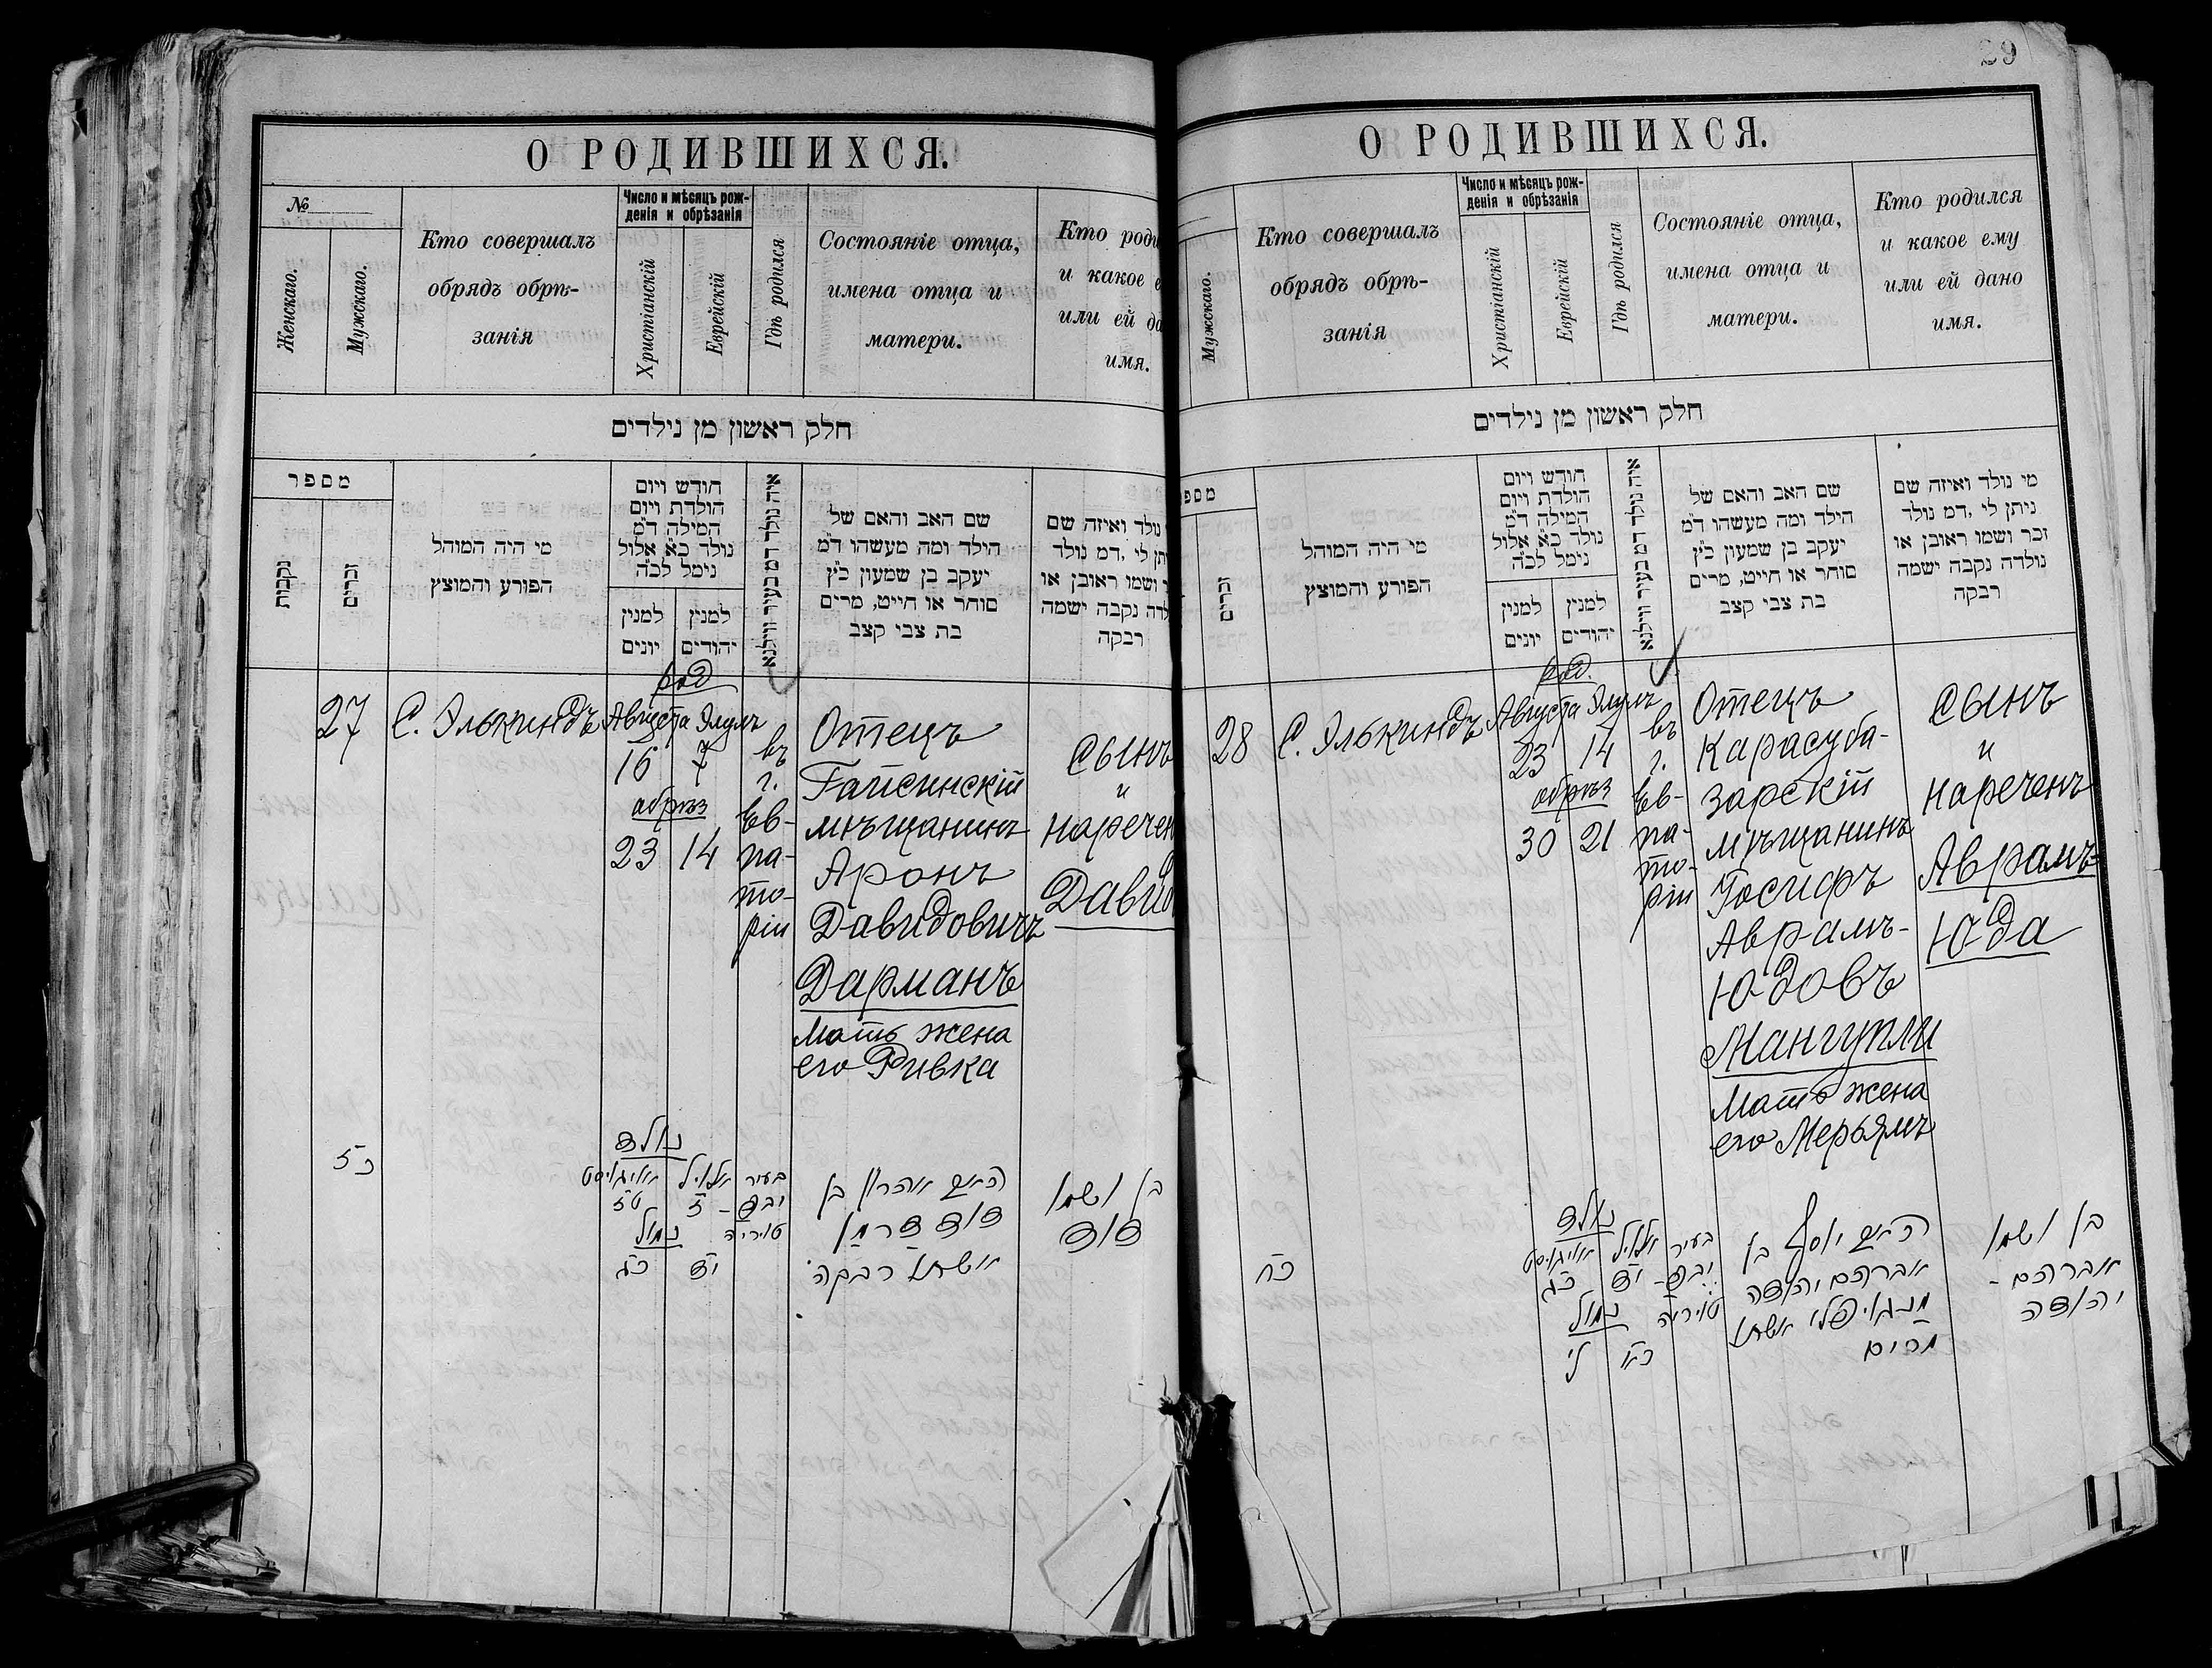 О РОДИВШИХСЯ.
№
Женскаго.
Мужскаго.
Кто совершалъ
обрядъ обрѣ-
занія
Число и мѣсяцъ рож-
денія и обрѣзанія
Христіанскій
Еврейскій
Гдѣ родился
Состояніе отца,
имена отца и
матери.
Кто роди
и какое е
или ей да
имя.
חלק ראשון מן נילדים
מספר
נקבות
זכרים
מי היה המוהל
הפורע והמוצץ
חודש ויום
הולדת ויום
המילה ד״מ
נולד כ״א אלול
נימל לכ״ה
למנין
יונים
למנין
יהודים
איה נולד דמ בעיר ווילנא
שם האב והאם של
הילד ומה מעשהו ד״מ
יעקב בן שמעון כ״ץ
סוחר או חייט, מרים
בת צבי קצב
נולד ואיזה שם
תן לי ,דמ נולד
ר ושמו ראובן או
לדה נקבה ישמה
רבקה
27
С. Элькиндъ
род
Августа Элулъ
16 7
обрѣз
23 14
въ
г.
Ев-
па-
то-
ріи
Отецъ
Гайсинскій
мѣщанинъ
Аронъ
Давидовичъ
Дарманъ
Мать жена
его Ривка
сынъ
и
наречен
Давид
כז
נולד
אויגוסט אלול
טז ז
נמול
כג יד
בעיר
יבפ-
טוריה
האב אהרון בן
דוד דרמן
אשתו רבקה
בן ושמו
דוד
29
О РОДИВШИХСЯ.
Мужскаго.
Кто совершалъ
обрядъ обрѣ-
занія
Число и мѣсяцъ рож-
денія и обрѣзанія
Христіанскій
Еврейскій
Гдѣ родился
Состояніе отца,
имена отца и
матери.
Кто родился
и какое ему
или ей дано
имя.
חלק ראשון מן נילדים
מספ
זכרים
מי היה המוהל
הפורע והמוצץ
חודש ויום
הולדת ויום
המילה ד״מ
נולד כ״א אלול
נימל לכ״ה
למנין
יונים
למנין
יהודים
איה נולד דמ בעיר ווילנא
שם האב והאם של
הילד ומה מעשהו ד״מ
יעקב בן שמעון כ״ץ
סוחר או חייט, מרים
בת צבי קצב
מי נולד ואיזה שם
ניתן לי ,דמ נולד
זכר ושמו ראובן או
נולדה נקבה ישמה
רבקה
28
С. Элькиндъ
род.
Августа Элулъ
23 14
обрѣз
30 21
въ
г.
Ев-
па-
то-
ріи
Отецъ
Карасуба-
зарскій
мѣщанинъ
Іосифъ
Аврамъ-
Юдовъ
Мангупли
Мать жена
его Мерьямъ
сынъ
и
нареченъ
Аврамъ-
Юда
כח
נולד
אויגוסט אלול
כג יד
נמול
ל כא
בעיר
יבפ-
טוריה
האב יוסף בן
אברהם יהודה
מנגופלי אשתו
מרים
בן ושמו
אברהם-
יהודה